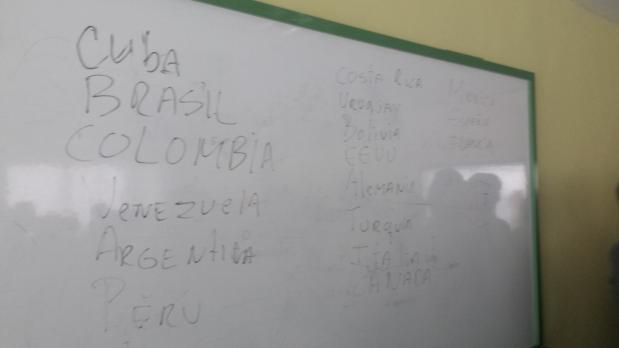 CUBA
BRASIL
COLOMBIA
VENEZUELA
ARGENTINA
PERU
COSTA RICA
URUGUAY
BOLIVIA
EEUU
ALEMANIA
TURQUIA
ITALIA
CANADA
MEXICO
ESPAÑA
FRANCIA